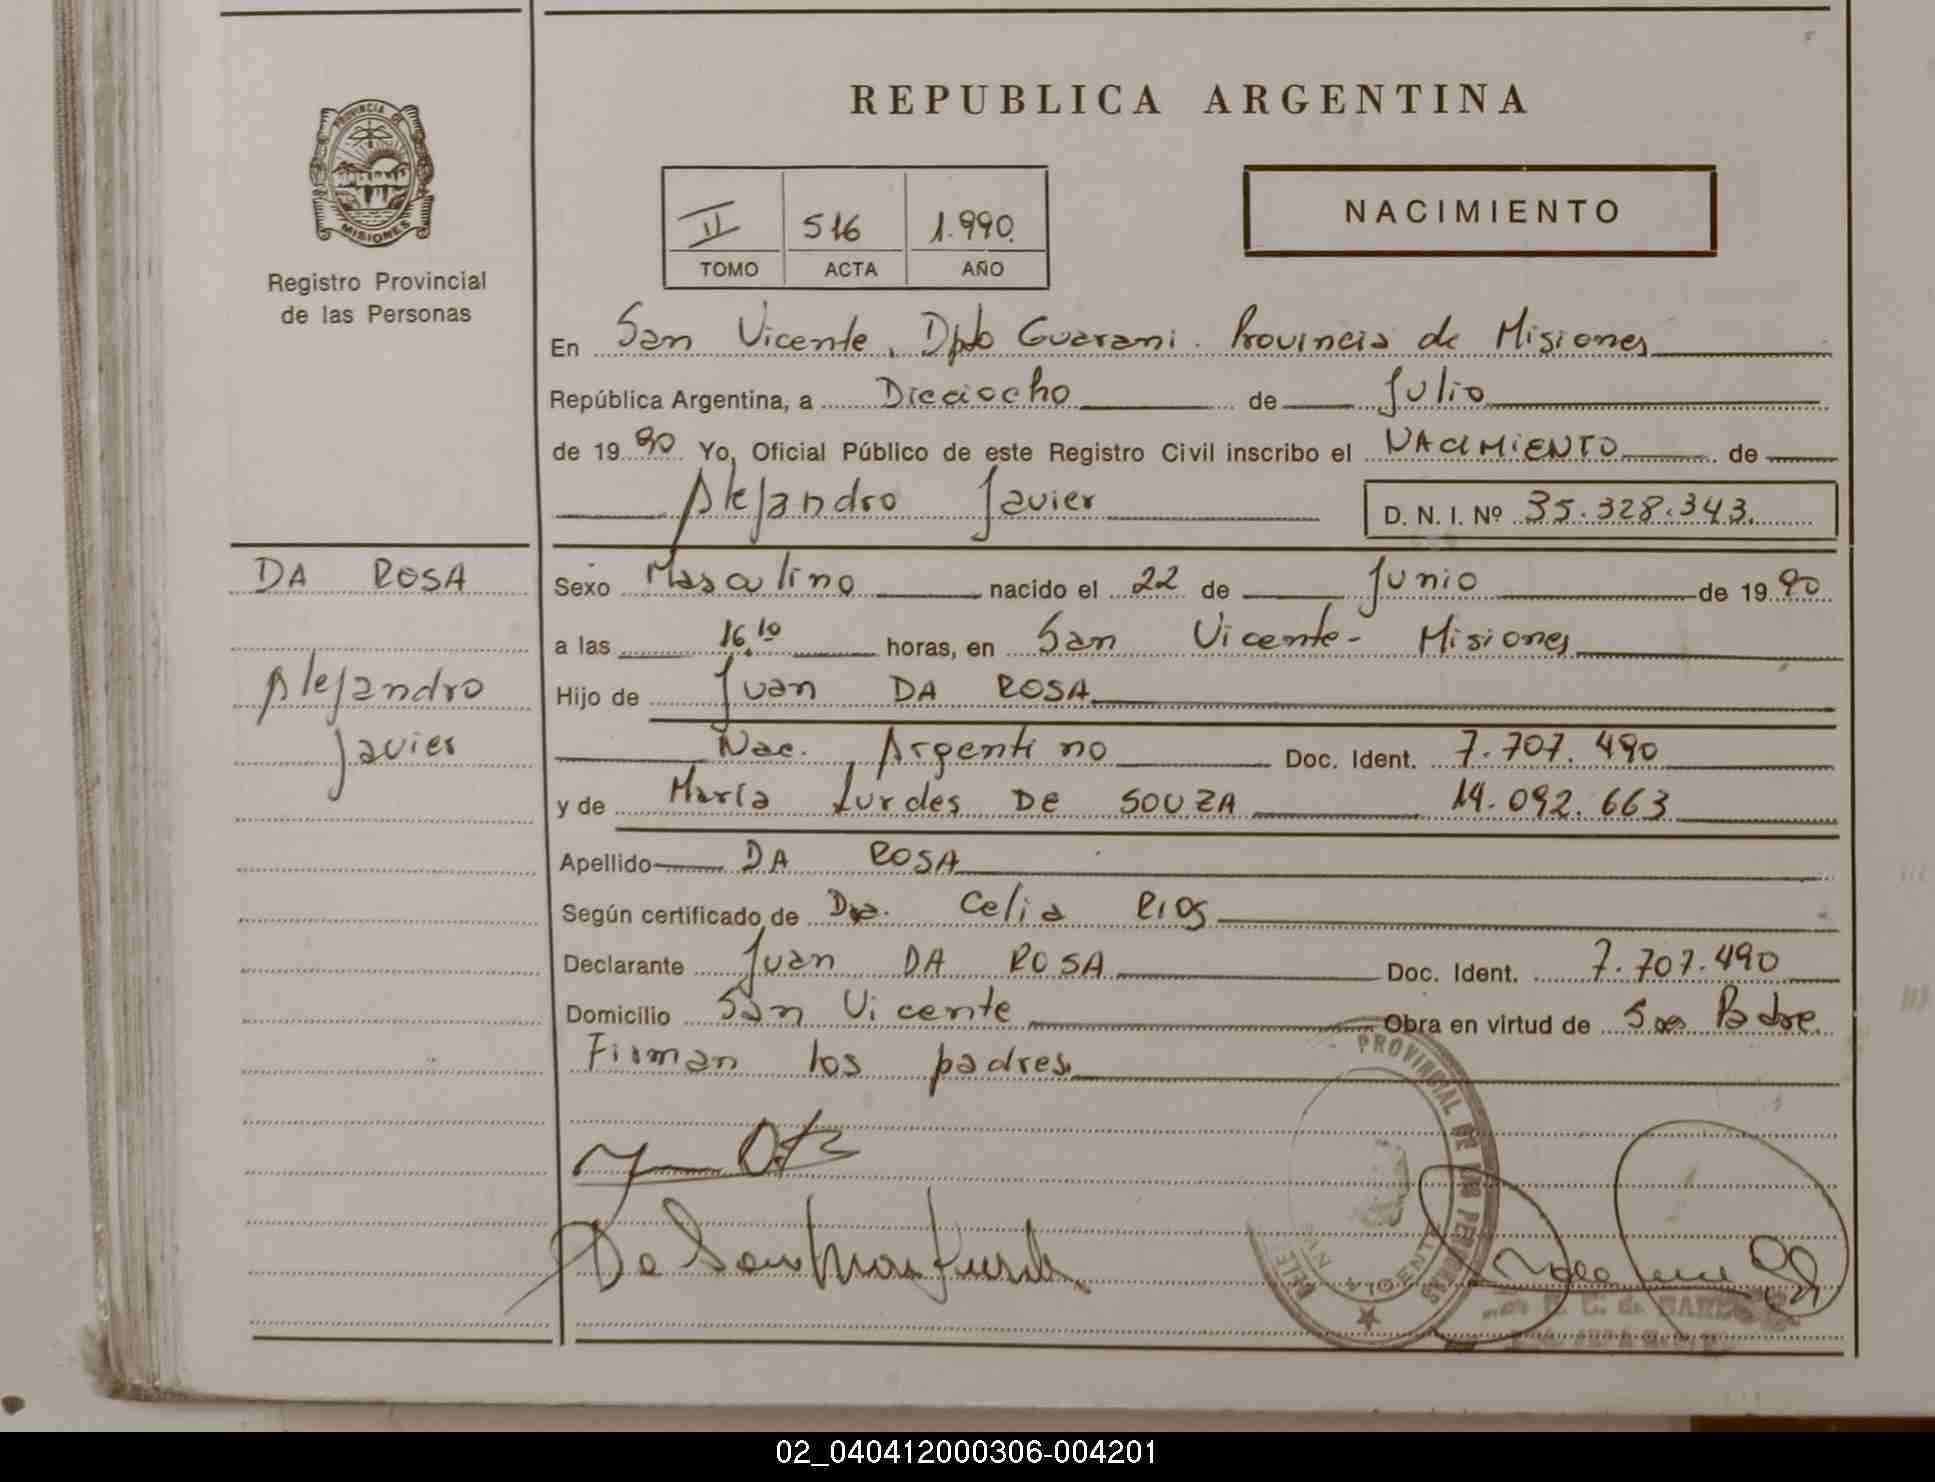 REPUBLICA ARGENTINA
PROVINCIA DE
MISIONES
Registro Provincial
de las Personas
II 516 1.990
TOMO ACTA AÑO
NACIMIENTO
En San Vicente, Dpto Guarani. Provincia de Misiones
República Argentina, a Dieciocho de Julio
de 1990 Yo, Oficial Público de este Registro Civil inscribo el NACIMIENTO de
Alejandro Javier D. N. I. Nº 35.328.343.
DA ROSA
Alejandro
Javier
Sexo Masculino nacido el 22 de Junio de 1990
a las 16.10 horas, en San Vicente- Misiones
Hijo de Juan DA ROSA
Nac. Argentino Doc. Ident. 7.707.490
y de María Lurdes DE SOUZA 14.092.663
Apellido DA ROSA
Según certificado de Dra. Celia RIOS
Declarante Juan DA ROSA Doc. Ident. 7.707.490
Domicilio San Vicente Obra en virtud de Ser Padre
Firman los padres
PROVINCIAL DE LAS PERSONAS
02_040412000306-004201